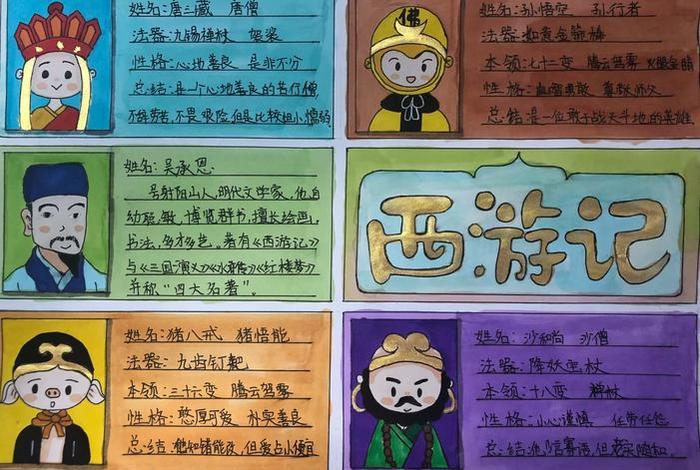 姓名:唐三藏 唐僧
法器:九锡禅杖 袈裟
性格:心地善良 是非不分
总结:是一个心地善良的苦行僧
不辞劳苦,不畏艰险,但是比较胆小懦弱
佛
姓名:孙悟空 孙行者
法器:如意金箍棒
本领:七十二变 腾云驾雾 火眼金睛
性格:勇敢 尊敬师父
总结:是一位敢于战天斗地的英雄
姓名:吴承恩
号射阳山人,明代文学家,他自
幼聪敏,博览群书,擅长绘画,
书法,多才多艺。著有《西游记》
与《三国演义》《水浒传》《红楼梦》
并称“四大名著”。
西游记
姓名:猪八戒 猪悟能
法器:九齿钉耙
本领:三十六变 腾云驾雾
性格:憨厚可爱 朴实善良
总结:知错能改,但爱占小便宜
姓名:沙和尚 沙僧
法器:降妖宝杖
本领:十八变
性格:小心谨慎 任劳任怨
总结:沉默寡语,但随和